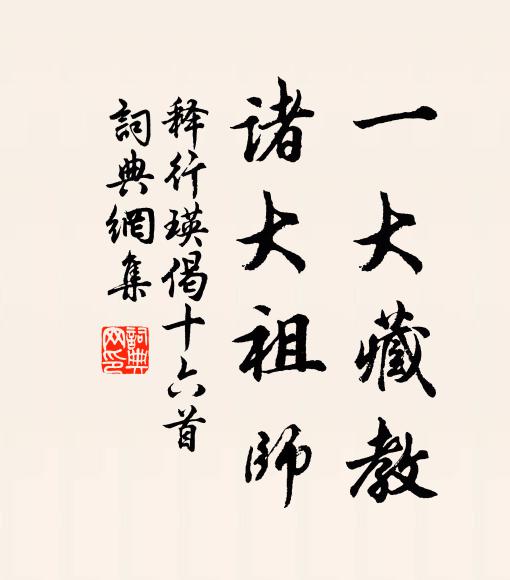 一大藏教
诸大祖師
释行瑛偈十六首
詞典網集
詞典网印